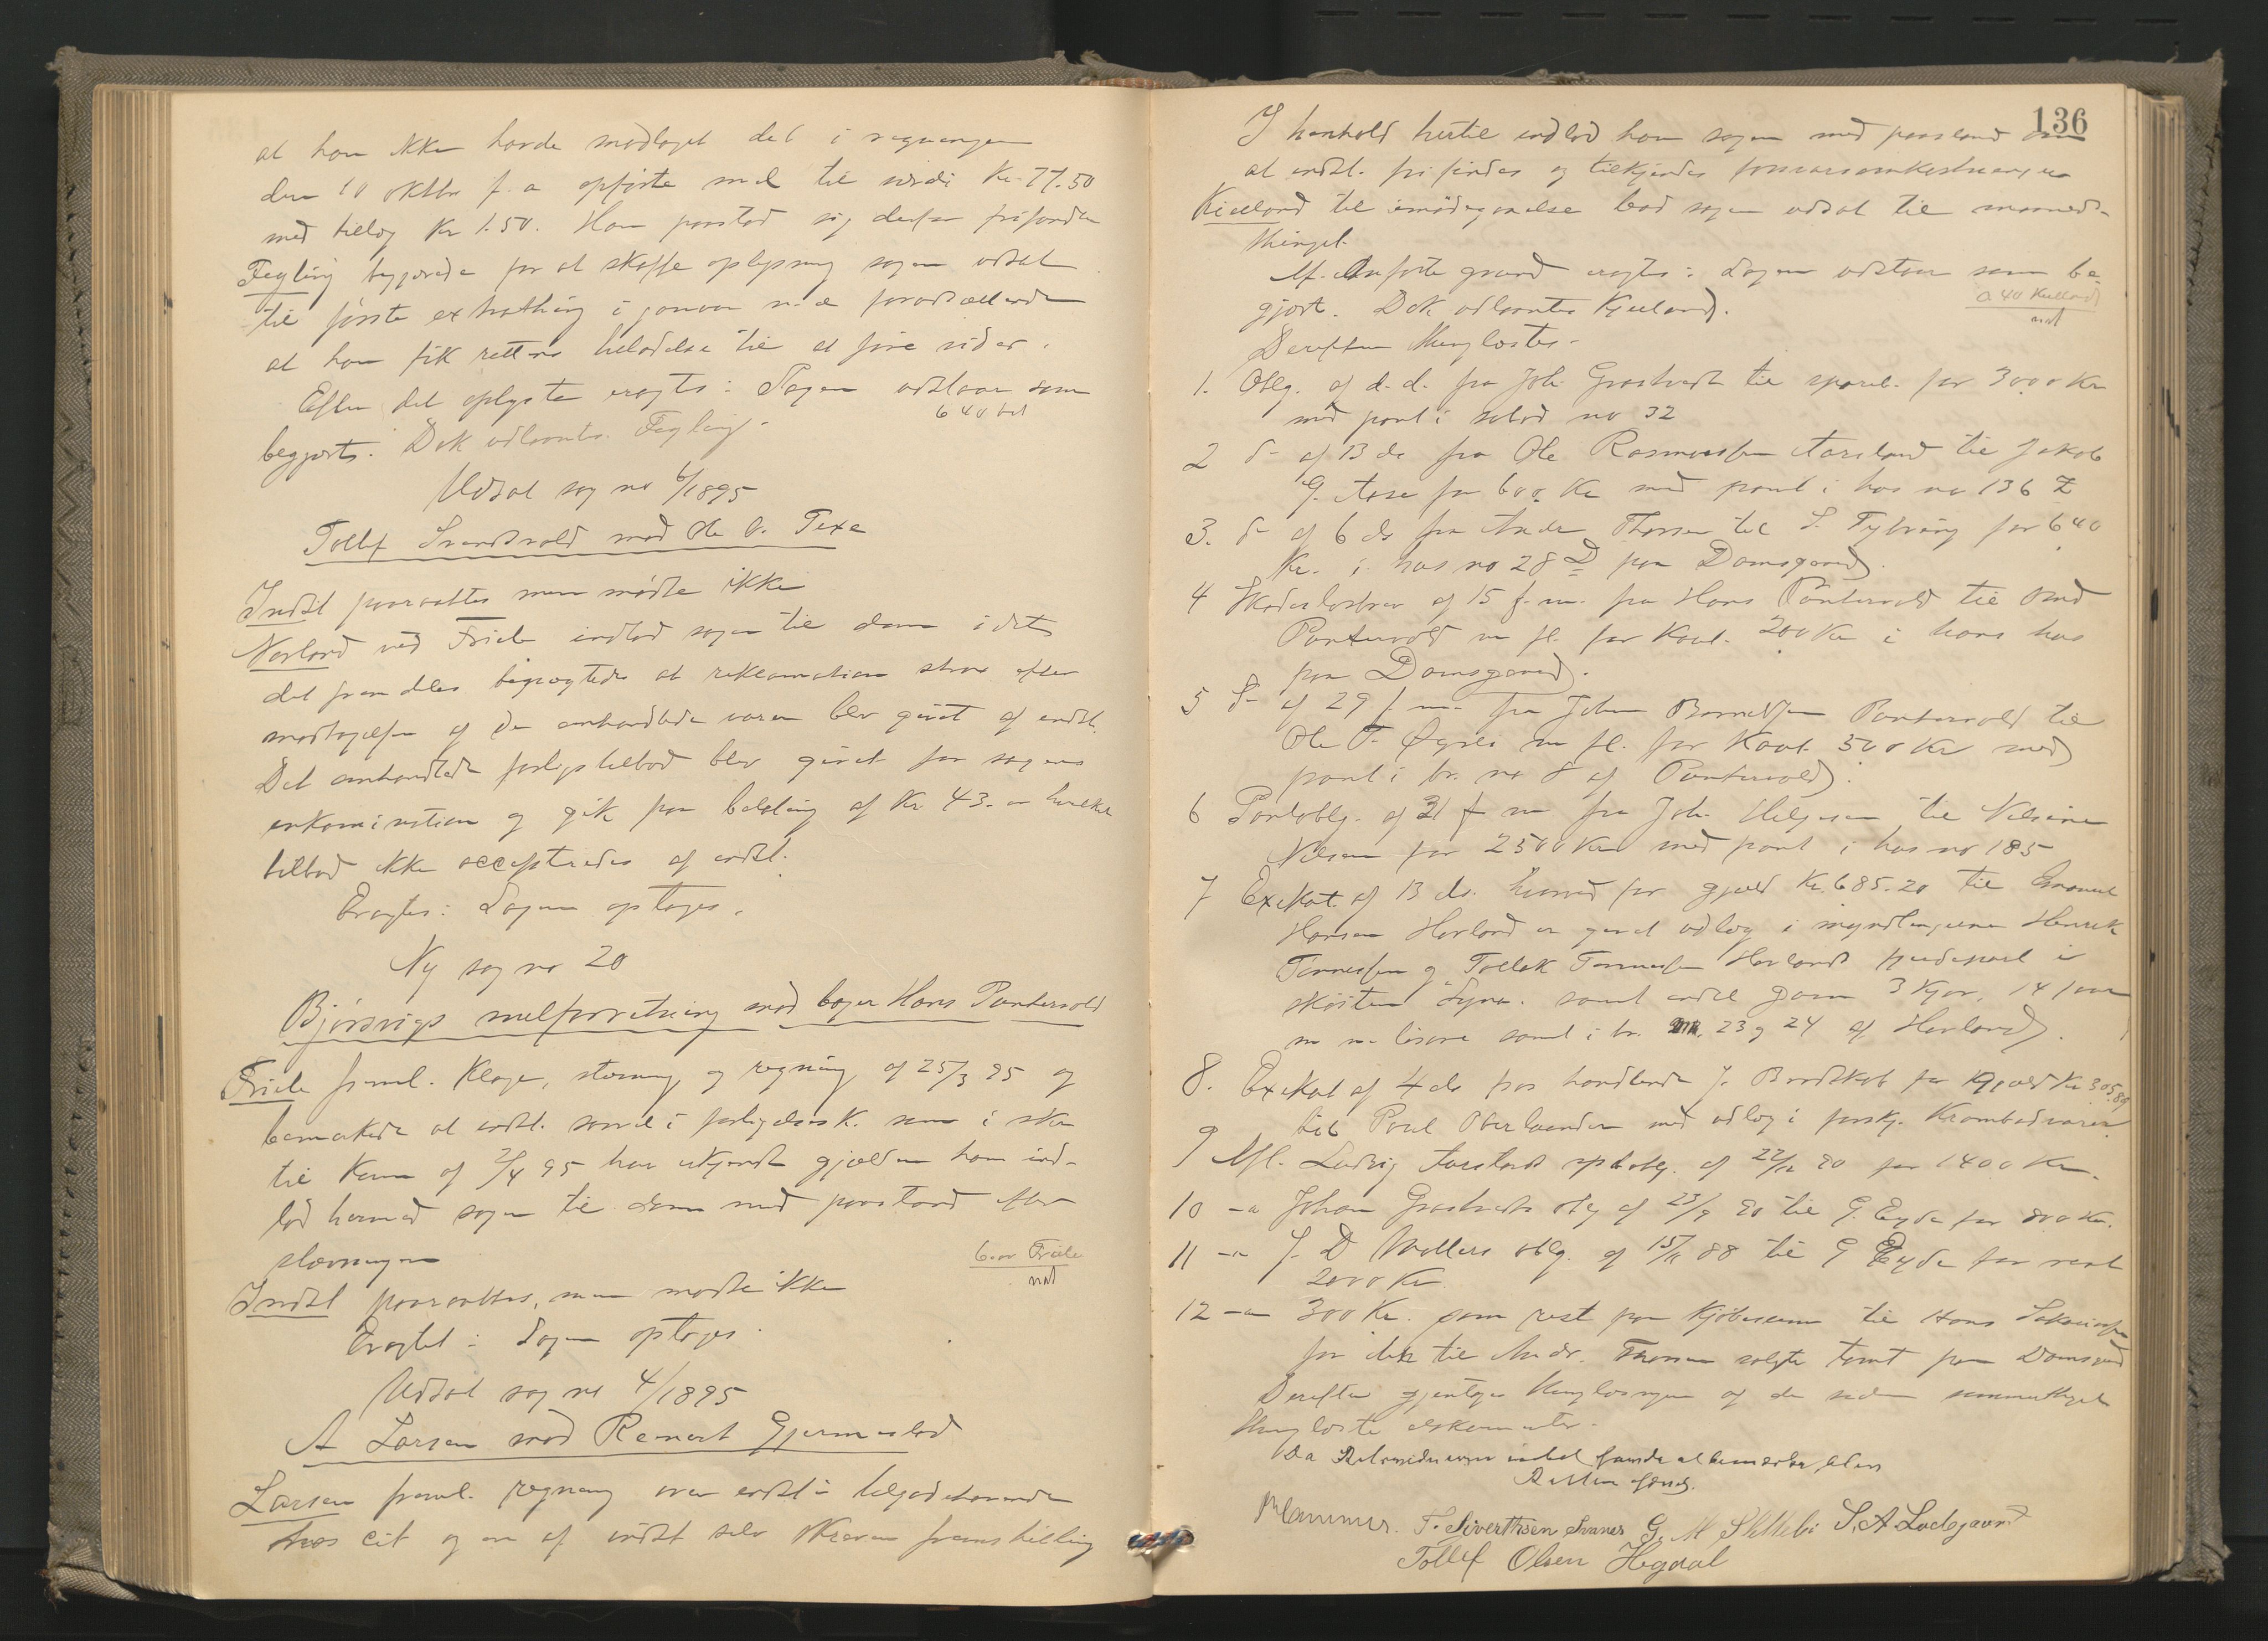 at han ikke havde modtaget det i regningen
den 10 oktbr f. a. opførte mel til værdi Kr. 77.50
med tillæg Kr 1.50. Han paastod sig derfor frifunden
Fegling begjærede for at skaffe oplysning sagen udsat
til første extrathing i januar n. a. forudsættende
at han fik rettens tilladelse til at føre vidner.
Efter det oplyste eragtes: Sagen udstaar som
begjært. Dok udlaantes Fegling.
6 40 bet
Udsat sag no 6/1895
Tollef Svendsvold mod Ole O. Texe
Indst paaraabtes men mødte ikke
Norland ved Friele indlod sagen til dom idet
det fremdeles benægtedes at reklamation strax efter
modtagelsen af de omhandlede varer blev gjort af indst.
Det omhandlede forligstilbud blev gjort før sagens
inkamination og gik paa betaling af Kr 43. hvilket
tilbud ikke acceptredes af indst.
Eragtes: Sagen optages.
Ny sag no 20
Bjørsvigs melforretning mod bager Hans Pontervold
Friele freml. klage, stævning og regning af 25/3 95 og
bemærkede at indst. saavel i forligelsesk. som i
til Kam af 2/4 95 har erkjendt gjælden han ind-
lod hermed sagen til dom med paastand efter
stævningen
6.00 Friele
not
Indst paaraabtes, men mødte ikke
Eragtet: Sagen optages.
Udsat sag no 4/1895
A Larsen mod Reinert Gjermeslad
Larsen freml. regning over indst's tilgodehavende
hos cit og en af indst selv skreven fremstilling
136
I henhold hertil indlod han sagen med paastand om
at indst. frifindes og tilkjendes
Kielland til imødegaaelse bad sagen udsat til maaneds-
thinget.
Af anførte grund eragtes: Sagen udstaar som be-
gjært. Dok udlaantes Kielland.
0.40 Kielland
not
Derefter thinglæstes.
1. Oblg. af d. d. fra Joh. Grastvedt til spareb. for 3000 Kr
med pant i solod no 32
2 do af 13 ds fra Ole Rasmussen Aarsland til Jakob
G. Aase for 600 Kr med pant i hus no 136 Z
3. do af 6 ds fra Andr. Thorsen til S. Tysvær for 640
Kr. i hus no 28 D paa Damsgaard.
4 Skadesløsbrev af 15 f. m. fra Hans Pontervold til
Pontervold m fl. for Kaut. 200 Kr i hans hus
paa Damsgaard.
5 do af 29 f. m. fra Johan Pontervold til
Ole T. m fl. for Kaut. 500 Kr med
pant i br. no 8 af Pontervold.
6 Pantoblg. af 31 f m fra Joh. Helgesen til Nilsine
Nilsen for 2500 Kr med pant i hus no 185
7 Exekut. af 13 ds. hvorved for gjæld Kr. 685.20 til
Hansen Havland er gjort udlæg i myndlingerne Henrik
Tønnessen og Tollak Tønnessen Havlands fjerdepart i
skøiten Syra. samt endel garn 3 kjør, 14 faar
m m løsøre samt i br. no. 23 og 24 af Havland.
8. Exekut af 4 ds hos handlende J. Brodskob for gjæld Kr 305.80
til Paul Oberlaender med udlæg i forskj. krambodvarer.
9 Afl. Ludvig Aarslands oblg. af 22/12 90 for 1400 Kr.
10 -" Johan Grastvedts oblg af 23/9 90 til G. Eyde for 800 Kr.
11 -" J. D Wallers oblg. af 15/11 88 til G Eyde for rest
2000 Kr.
12 -" 300 Kr. som rest paa kjøbesum til Hans
for den til Andr. Thorsen solgte tomt paa Damsgaard
Derefter gjentoges thinglæsningen af de siden sommerthinget
thinglæste dokumenter.
Da Retsvidnerne intet havde at bemærke, blev
Retten hævet.
T. Siverthsen Svanes G. M S. A Lodsgaard
Tollef Olsen Hegdal